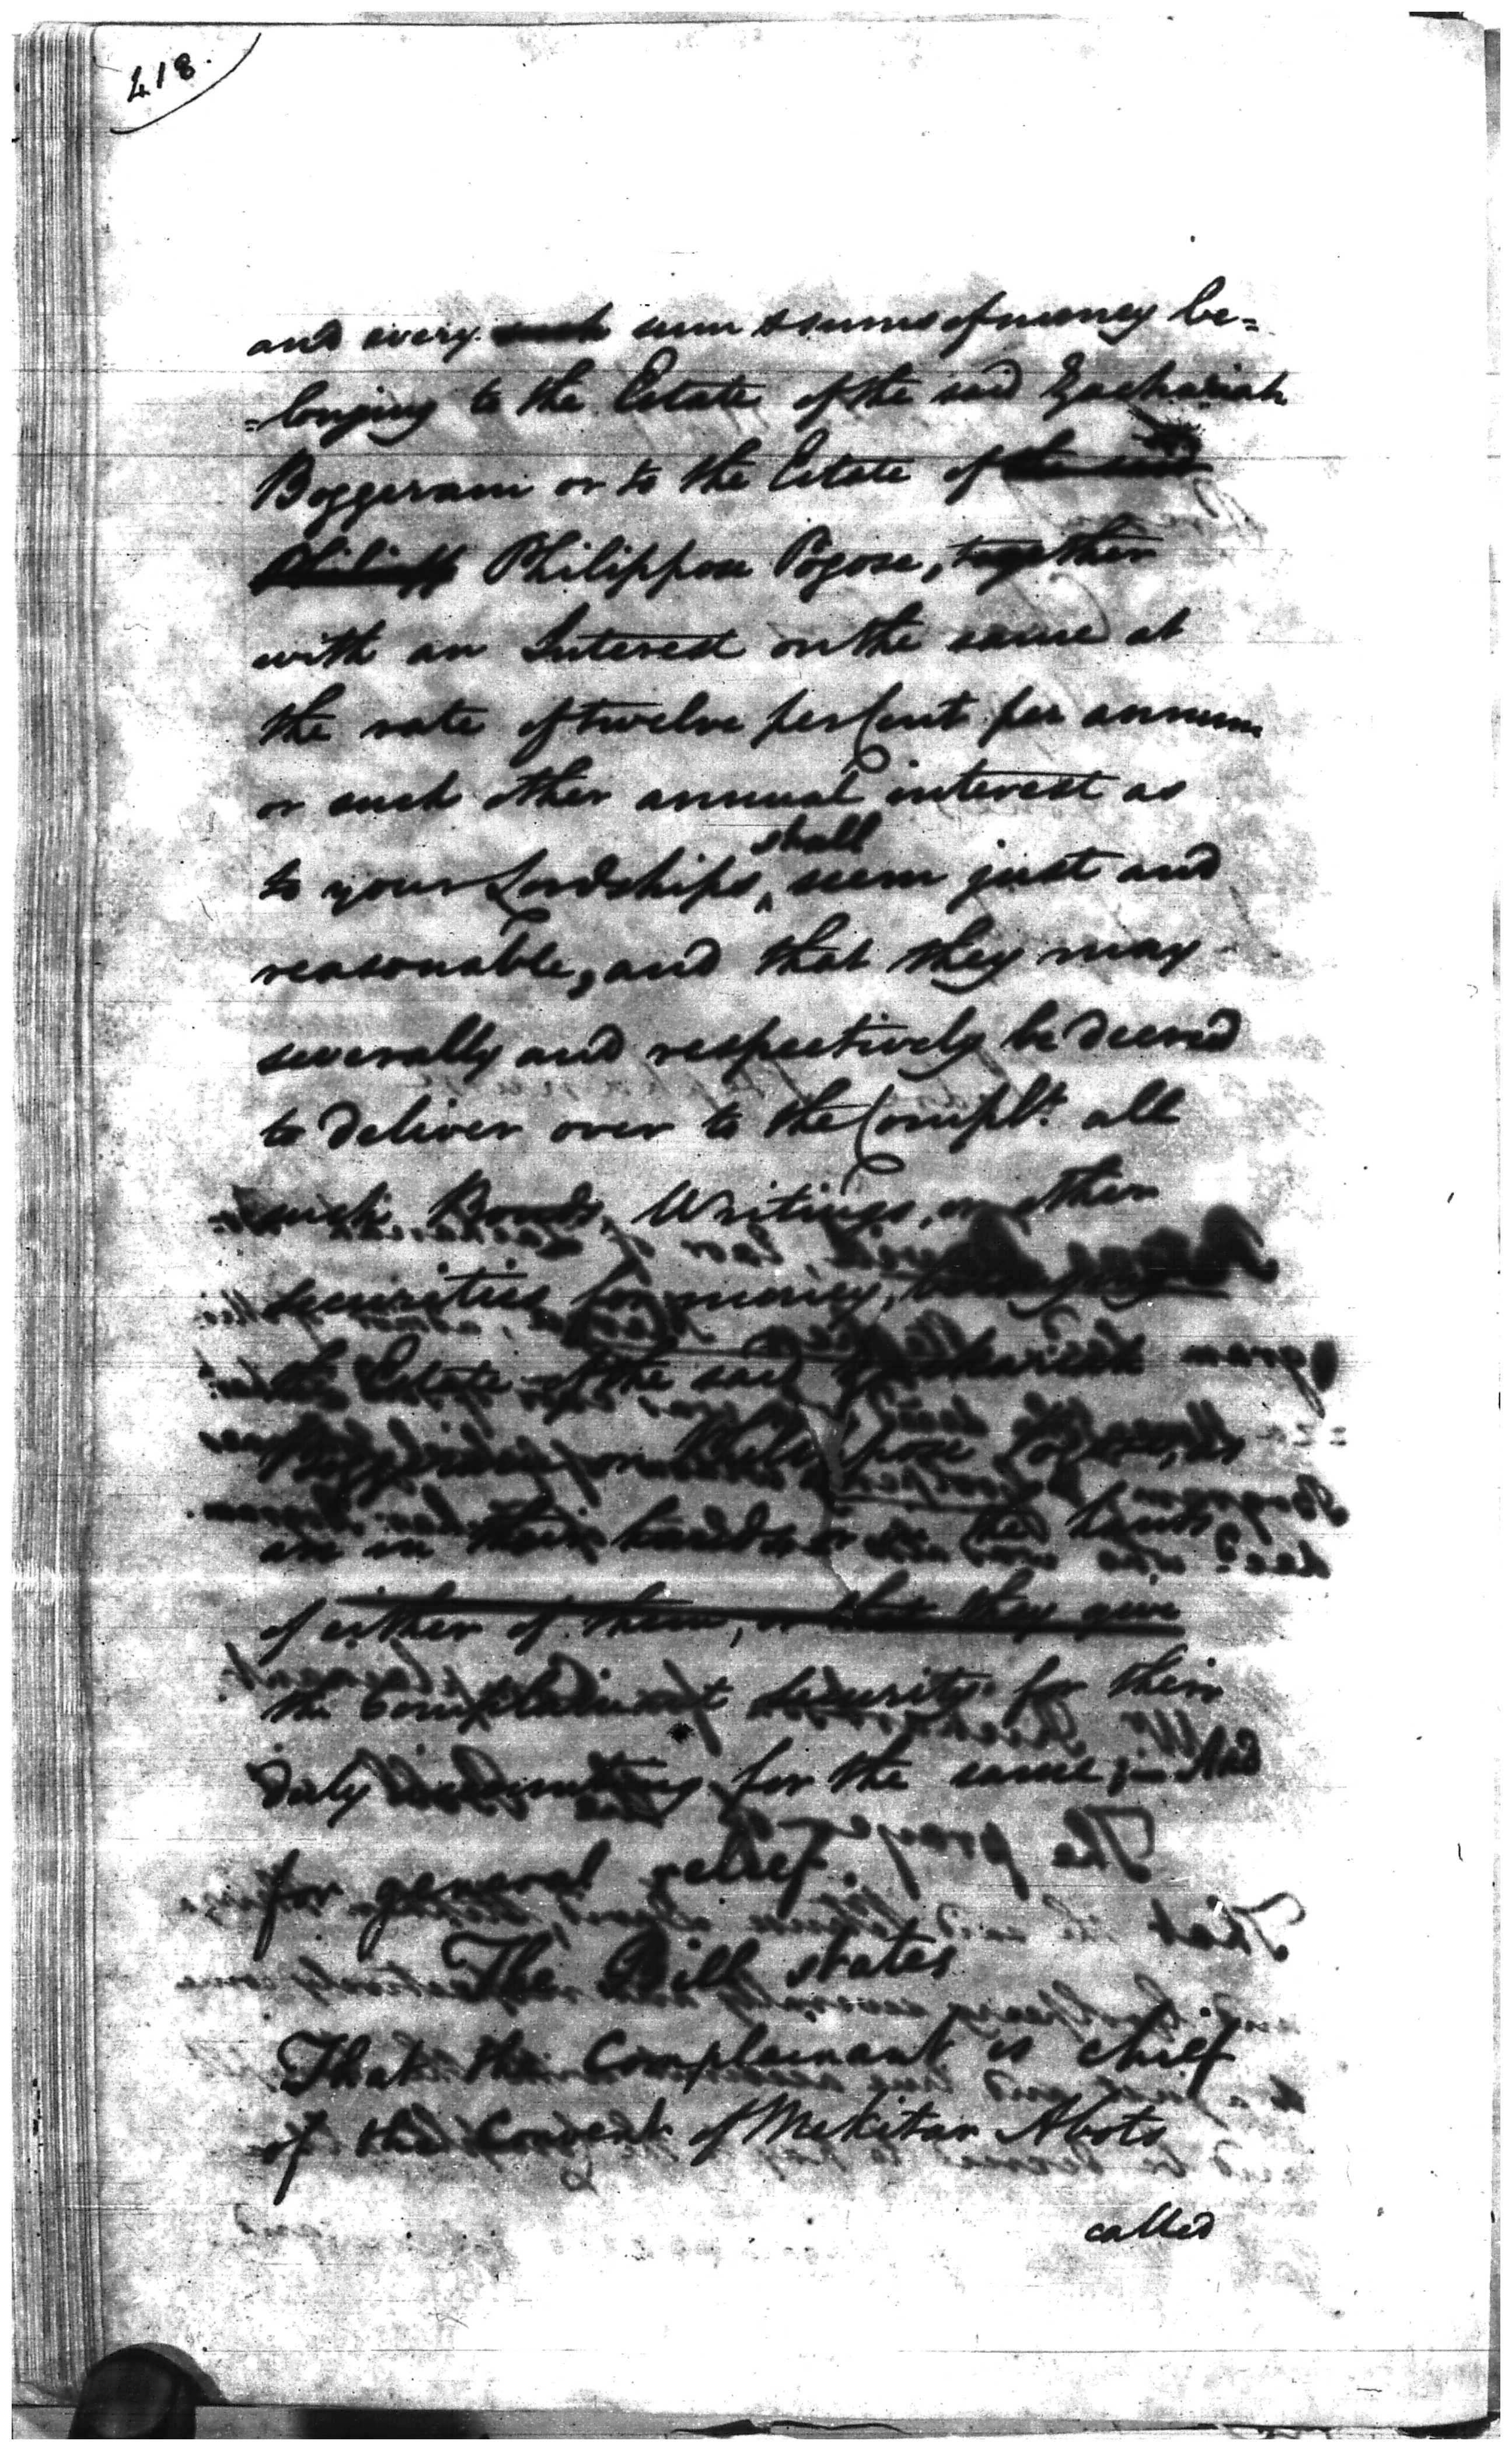 418.
and every such sum & sums of money be=
=longing to the Estate of the said Zachariah
Boggeram or to the Estate of the said
Philipp Philippose Pogose, together
with an Interest on the same at
the rate of twelve per Cent per annum
or such other annual interest as
shall
to your Lordships seem just and
reasonable, and that they may
severally and respectively be decreed
to deliver over to the Complt. all
such Bonds, Writings, or other
securities for money,
the Estate of the said Zachariah
or Philippose Pogose, as
are in their hands or in the hands
of either of them, or that they give
the Complainant security for their
duly accounting for the same; — And
for general relief.
The Bill states
That the Complainant is chief
of the Convent of Mekitar Abots
called